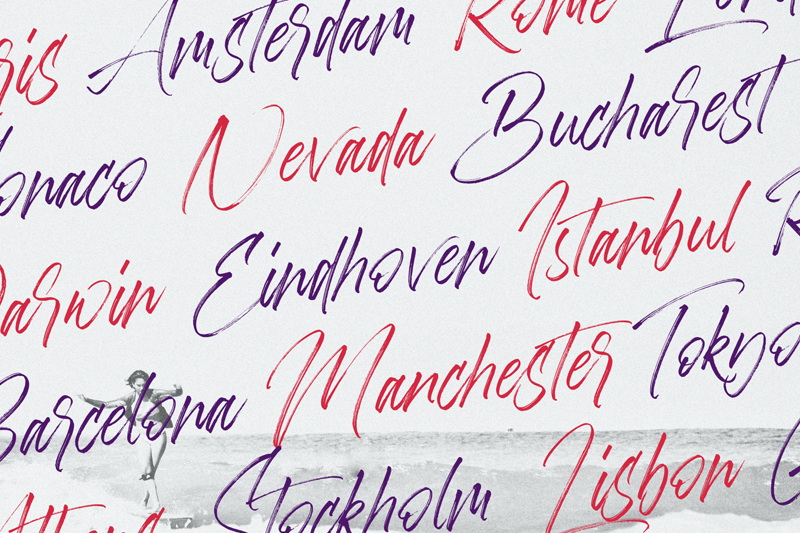 ris Amsterdam Rome
onaco Nevada Bucharest
Darwin Eindhoven Istanbul
Barcelona Manchester Tokyo
Stockholm Lisbon